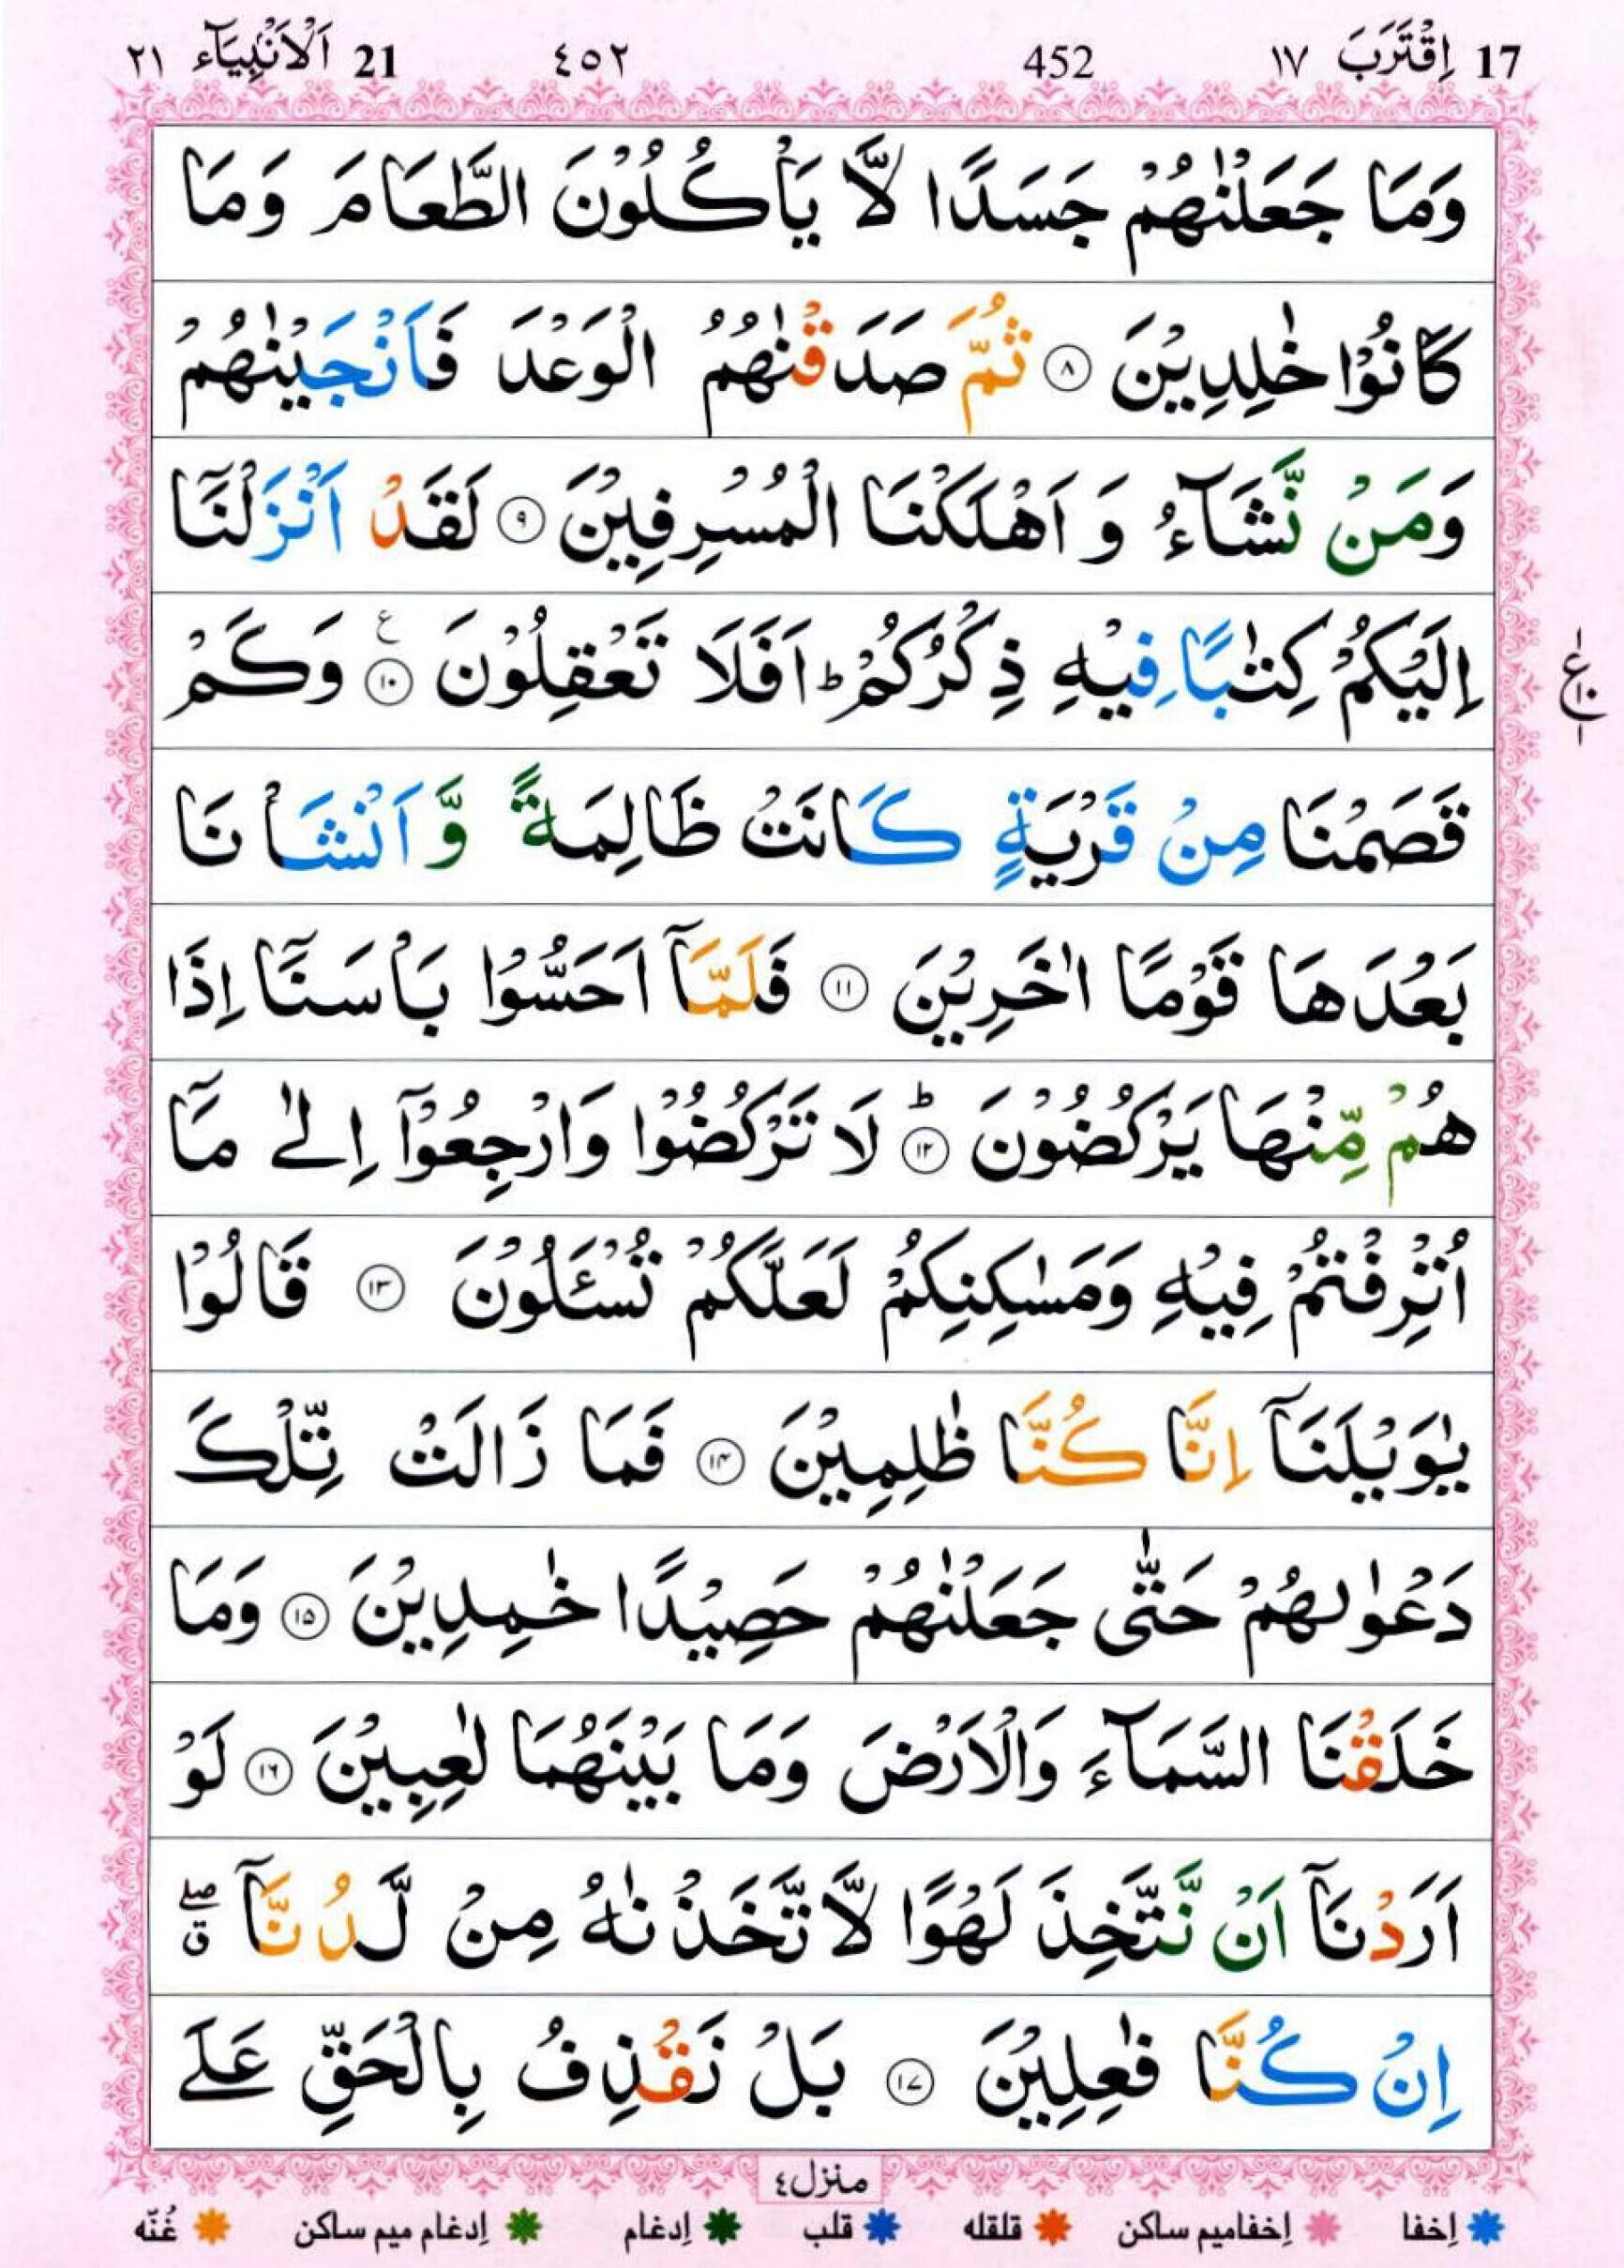 17 اِقْتَرَبَ ١٧ 452 ٤٥٢ 21 اَلْاَنْۢبِيَآء ٢١
وَمَا جَعَلْنٰهُمْ جَسَدًا لَّا يَاْكُلُوْنَ الطَّعَامَ وَمَا
كَانُوْا خٰلِدِيْنَ ۝٨ ثُمَّ صَدَقْنٰهُمُ الْوَعْدَ فَاَنْجَيْنٰهُمْ
وَمَنْ نَّشَآءُ وَ اَهْلَكْنَا الْمُسْرِفِيْنَ ۝٩ لَقَدْ اَنْزَلْنَآ
اِلَيْكُمْ كِتٰبًا فِيْهِ ذِكْرُكُمْ ؕ اَفَلَا تَعْقِلُوْنَ ۝١٠ ع وَكَمْ
قَصَمْنَا مِنْ قَرْيَةٍ كَانَتْ ظَالِمَةً وَّ اَنْشَاْ نَا
بَعْدَهَا قَوْمًا اٰخَرِيْنَ ۝١١ فَلَمَّآ اَحَسُّوْا بَاْسَنَآ اِذَا
هُمْ مِّنْهَا يَرْكُضُوْنَ ۝١٢ ؕ لَا تَرْكُضُوْا وَارْجِعُوْٓا اِلٰى مَآ
اُتْرِفْتُمْ فِيْهِ وَمَسٰكِنِكُمْ لَعَلَّكُمْ تُسْـَٔلُوْنَ ۝١٣ قَالُوْا
يٰوَيْلَنَآ اِنَّا كُنَّا ظٰلِمِيْنَ ۝١٤ فَمَا زَالَتْ تِّلْكَ
دَعْوٰىهُمْ حَتّٰى جَعَلْنٰهُمْ حَصِيْدًا خٰمِدِيْنَ ۝١٥ وَمَا
خَلَقْنَا السَّمَآءَ وَالْاَرْضَ وَمَا بَيْنَهُمَا لٰعِبِيْنَ ۝١٦ لَوْ
اَرَدْنَآ اَنْ نَّتَّخِذَ لَهْوًا لَّا تَّخَذْ نٰهُ مِنْ لَّدُنَّآ ۖ ق
اِنْ كُنَّا فٰعِلِيْنَ ۝١٧ بَلْ نَقْذِفُ بِالْحَقِّ عَلَى
منزل٤
إخفا إخفاميم ساكن قلقله قلب إدغام إدغام ميم ساكن غُنّه